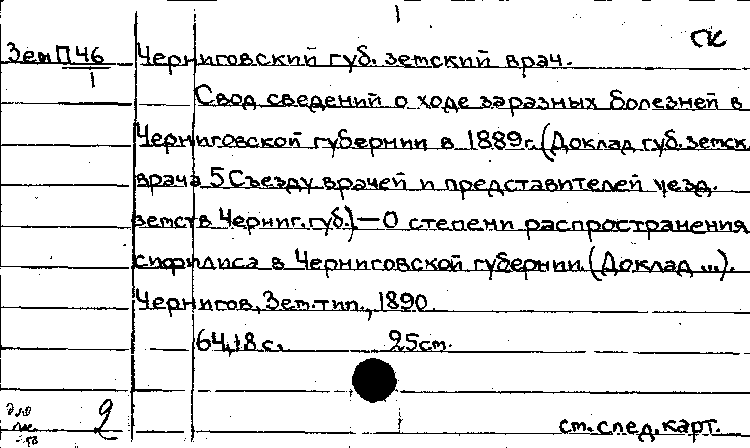 ГК
Зем П 46
1
Черниговский губ. земский врач.
Свод сведений о ходе заразных болезней в
Черниговской губернии в 1889 г. (Доклад губ. земск.
врача 5 Съезду врачей и представителей уезд.
земств Черниг. губ.) — О степени распространения
сифилиса в Черниговской губернии. (Доклад ...).
Чернигов, Зем. тип., 1890.
64, 18 с. 25 см.
2
см. след. карт.